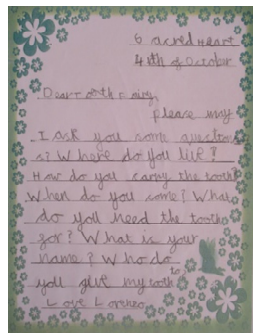 6 acred Heart
4 th of October
Dear tooth Fairy,
please may
I ask you some question
s? Where do you live?
How do you carry the tooth
When do you come? What
do you need the tooths
for? What is your
name? Who do
to
you give my tooth
Love Lorenzo